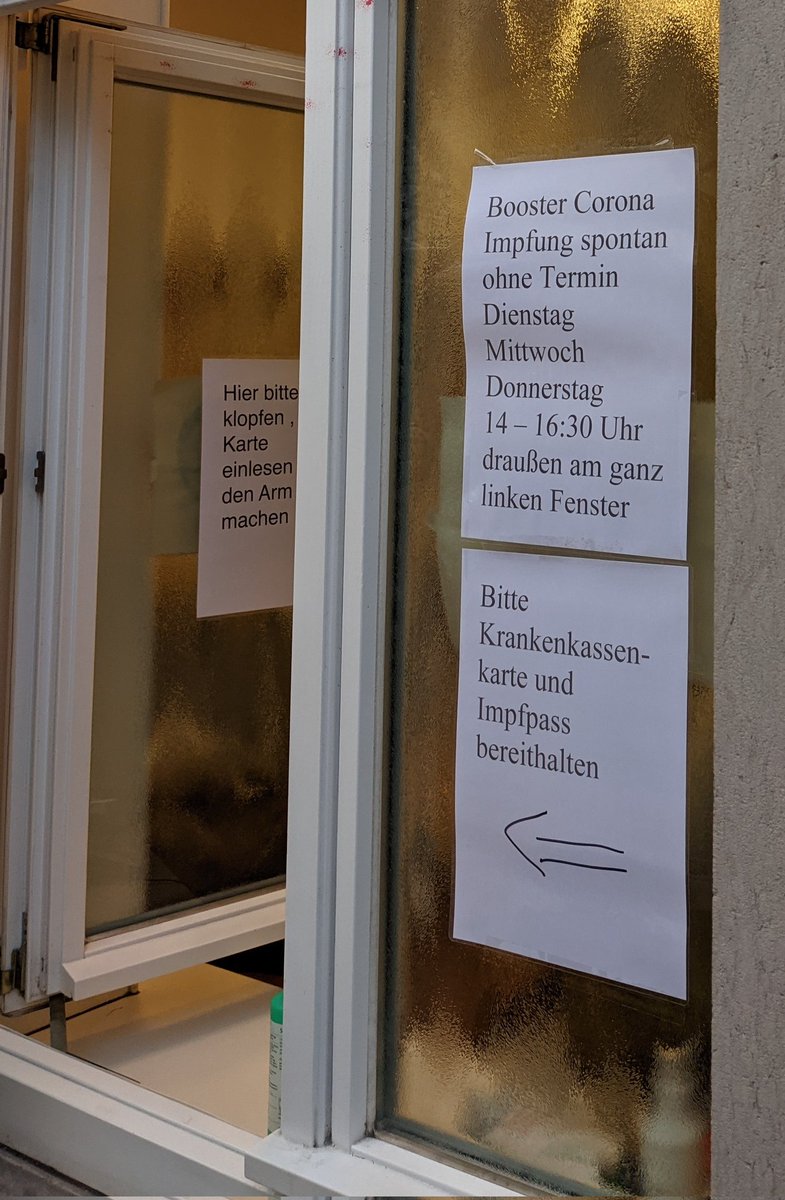 Booster Corona
Impfung spontan
ohne Termin
Dienstag
Mittwoch
Donnerstag
14 – 16:30 Uhr
draußen am ganz
linken Fenster
Bitte
Krankenkassen-
karte und
Impfpass
bereithalten
Hier bitte
klopfen ,
Karte
einlesen
den Arm
machen